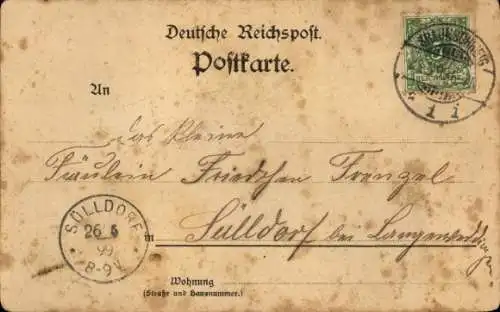 Deutsche Reichspost.
Postkarte.
An
das kleine
Fräulein Friedchen Frenzel
in Sülldorf bei Langenweddingen
SÜLLDORF
26 5
99
8-9V
Wohnung
(Straße und Hausnummer.)